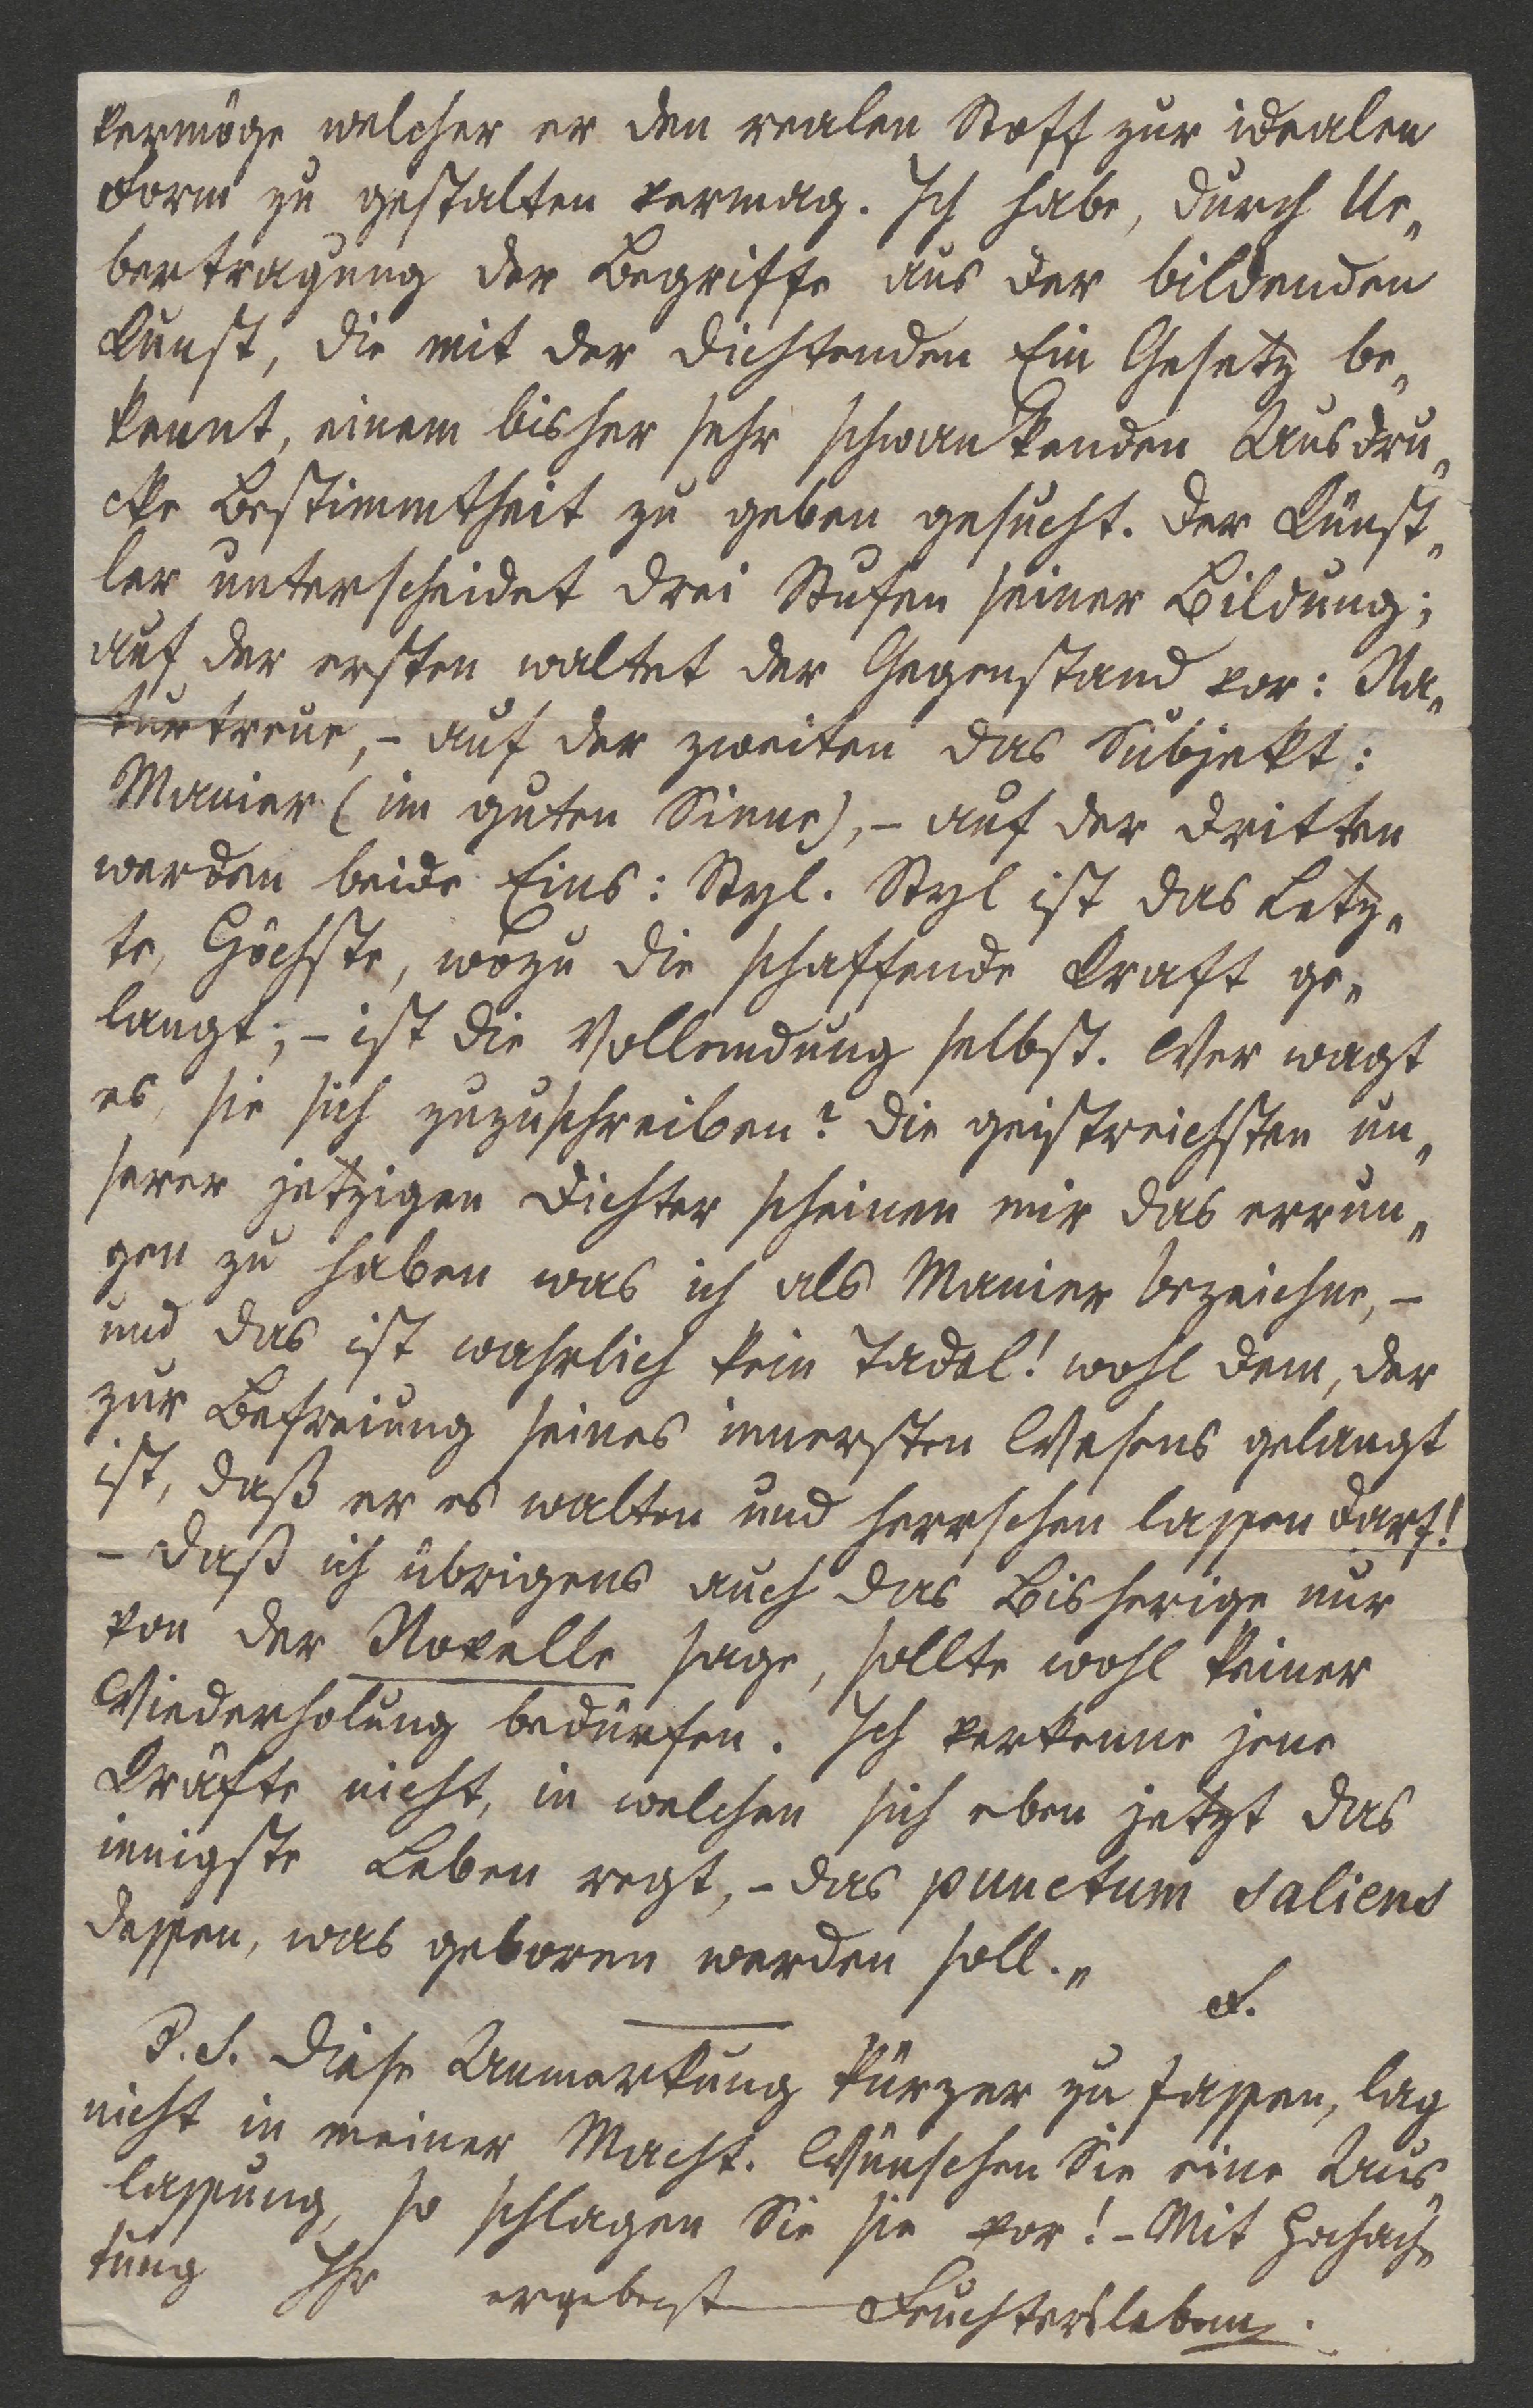 vermöge welcher er den realen Stoff zur idealen
Form zu gestalten vermag. Ich habe, durch Ue„
bertragung der Begriffe aus der bildenden
Kunst, die mit der dichtenden Ein Gesetz be„
kennt, einem bisher sehr schwankenden Ausdru„
cke Bestimmtheit zu geben gesucht. Der Künst„
ler unterscheidet drei Stufen seiner Bildung;
auf der ersten waltet der Gegenstand vor: Na„
turtreue, – auf der zweiten das Subjekt:
Manier (im guten Sinne), – auf der dritten
werden beide Eins: Styl. Styl ist das Letz„
te, Höchste, wozu die schaffende Kraft ge„
langt; – ist die Vollendung selbst. Wer wagt
es, sie sich zuzuschreiben? Die geistreichsten un„
serer jetzigen Dichter scheinen mir das errun„
gen zu haben was ich als Manier bezeichne, –
und das ist wahrlich kein Tadel! wohl dem, der
zur Befreiung seines innersten Wesens gelangt
ist, daß er es walten und herrschen lassen darf!
– Daß ich übrigens auch das Bisherige nur
von der Novelle sage, sollte wohl keiner
Wiederholung bedürfen. Ich verkenne jene
Kräfte nicht, in welchen sich eben jetzt das
innigste Leben regt, – das punctum saliens
dessen, was geboren werden soll.„
F.
P.S. Diese Anmerkung kürzer zu fassen, lag
nicht in meiner Macht. Wünschen Sie eine Aus„
lassung, so schlagen Sie sie vor! – Mit Hochach„
tung Ihr ergebenst Feuchtersleben.